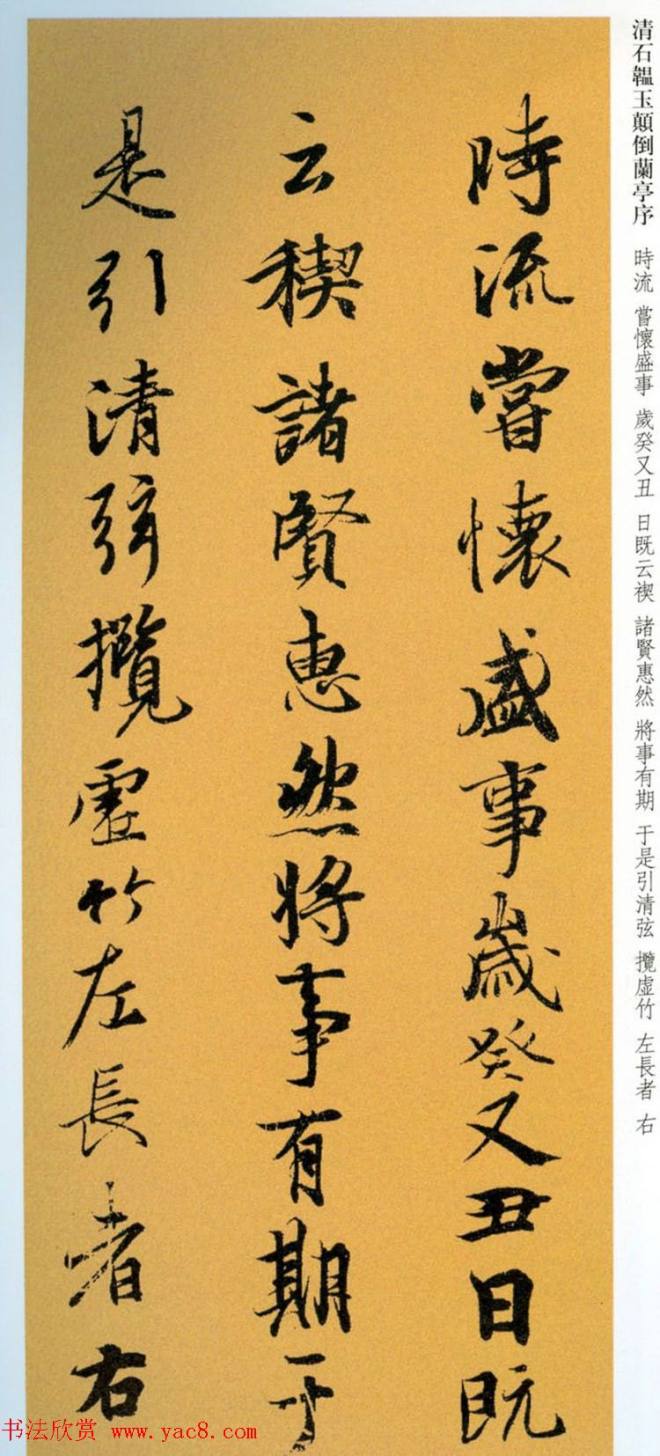 清石韞玉顛倒蘭亭序　時流　嘗懷盛事　歲癸又丑　日既云禊　諸賢惠然　將事有期　于是引清弦　攬虛竹　左長者　右
時流嘗懷盛事歲癸又丑日既
云稧諸賢惠然將事有期于
是引清弦攬虛竹左長者右
书法欣赏 www.yac8.com